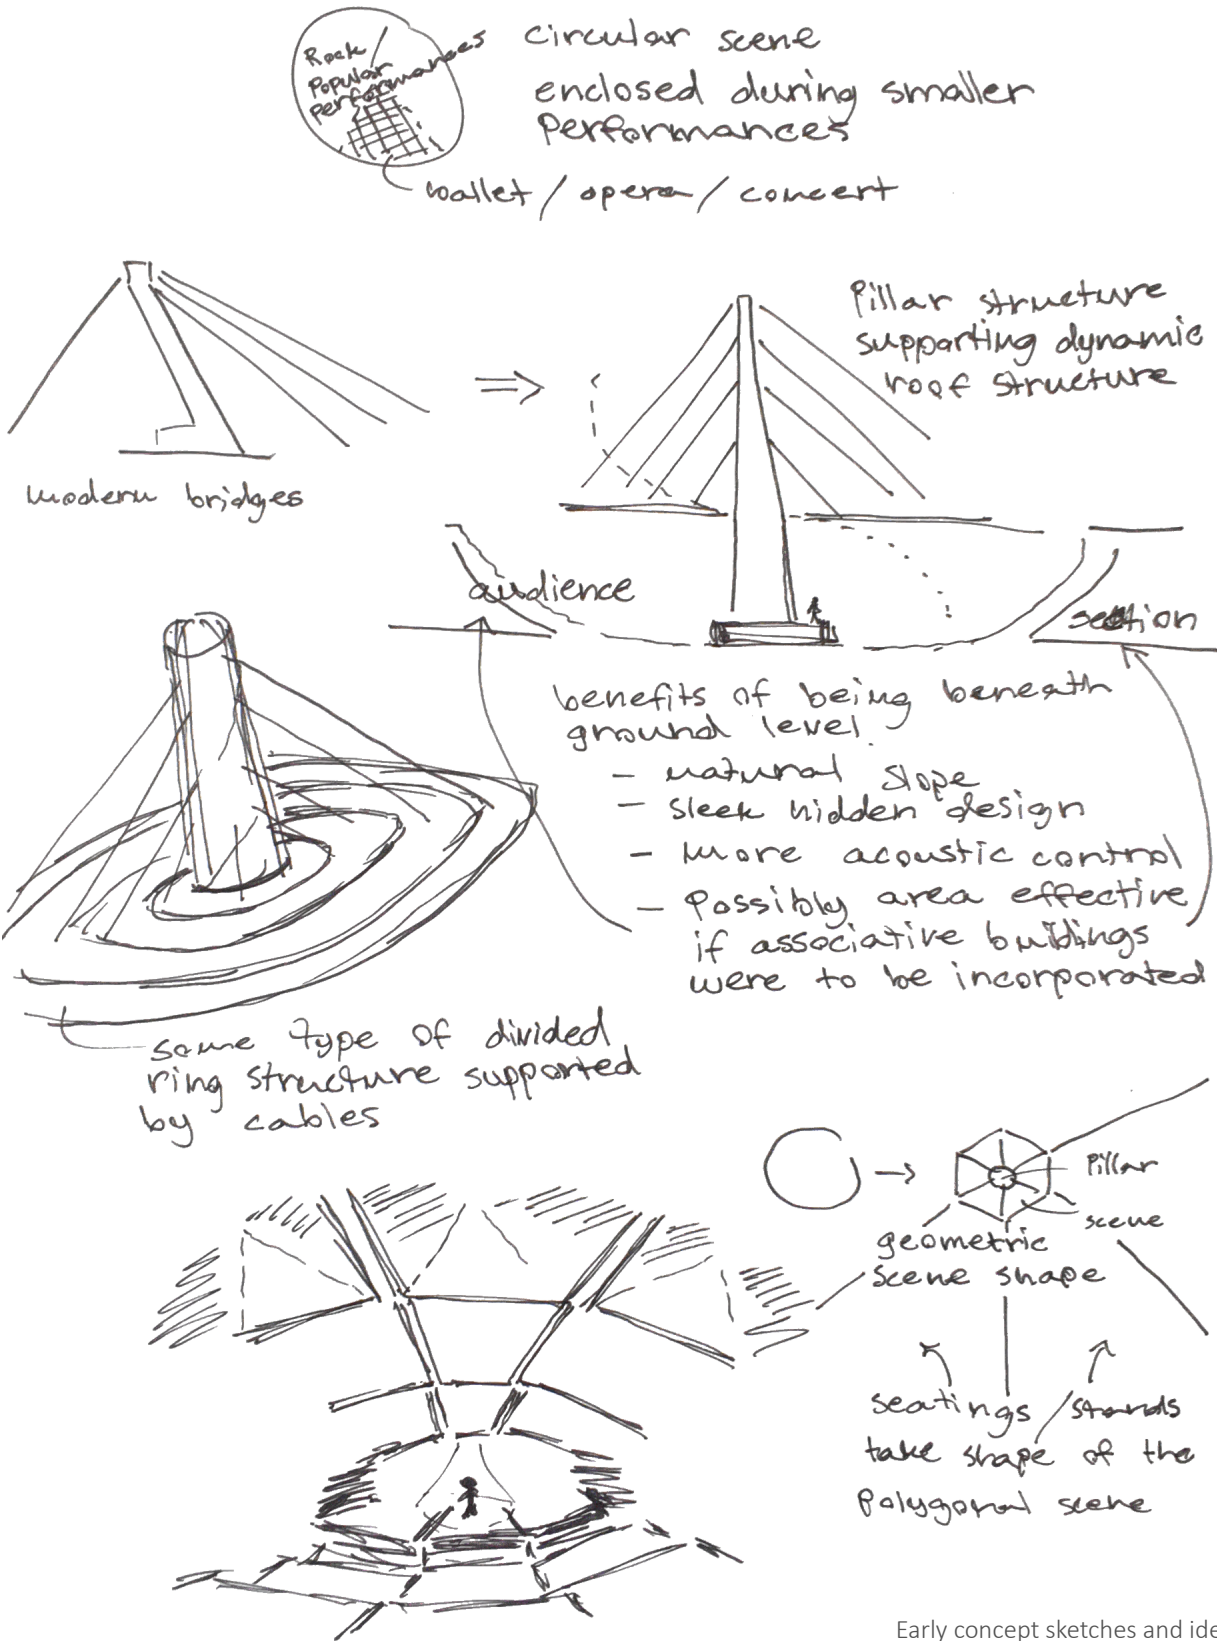 Rock /
Popular
performances
circular scene
enclosed during smaller
performances
ballet / opera / concert
modern bridges
Pillar structure
supporting dynamic
roof structure
audience
section
benefits of being beneath
ground level
- natural slope
- sleek hidden design
- more acoustic control
- Possibly area effective
if associative buildings
were to be incorporated
same type of divided
ring structure supported
by cables
Pillar
scene
geometric
scene shape
seatings / stands
take shape of the
polygonal scene
Early concept sketches and ide